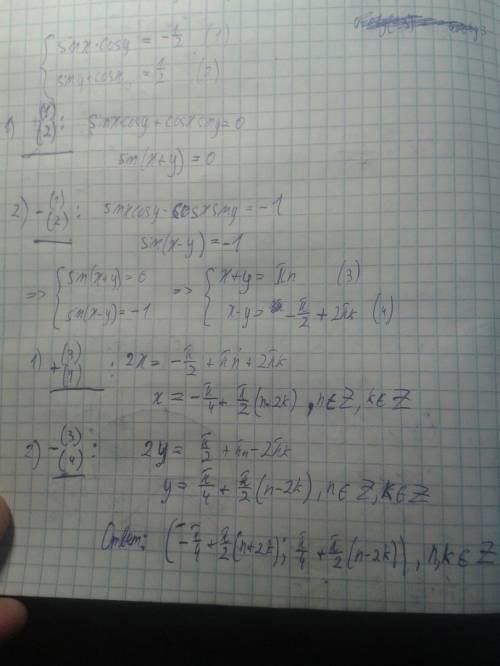 { sinx·cosy = -1/2 (1)
siny·cosx = 1/2 (2)
1) +(1)(2): sinxcosy+cosxsiny=0
sin(x+y) = 0
2) -(1)(2): sinxcosy-cosxsiny=-1
sin(x-y)=-1
=> { sin(x+y)=0 => { x+y= πn (3)
sin(x-y)=-1 x-y= -π/2 + 2πk (4)
1) +(3)(4) : 2x= -π/2 + πn + 2πk
x = -π/4 + π/2 (n+2k) , n∈Z, k∈Z
2) -(3)(4) : 2y = π/2 + πn - 2πk
y = π/4 + π/2 (n-2k), n∈Z, k∈Z
Ответ: (-π/4 + π/2 (n+2k); π/4 + π/2 (n-2k)), n,k∈Z